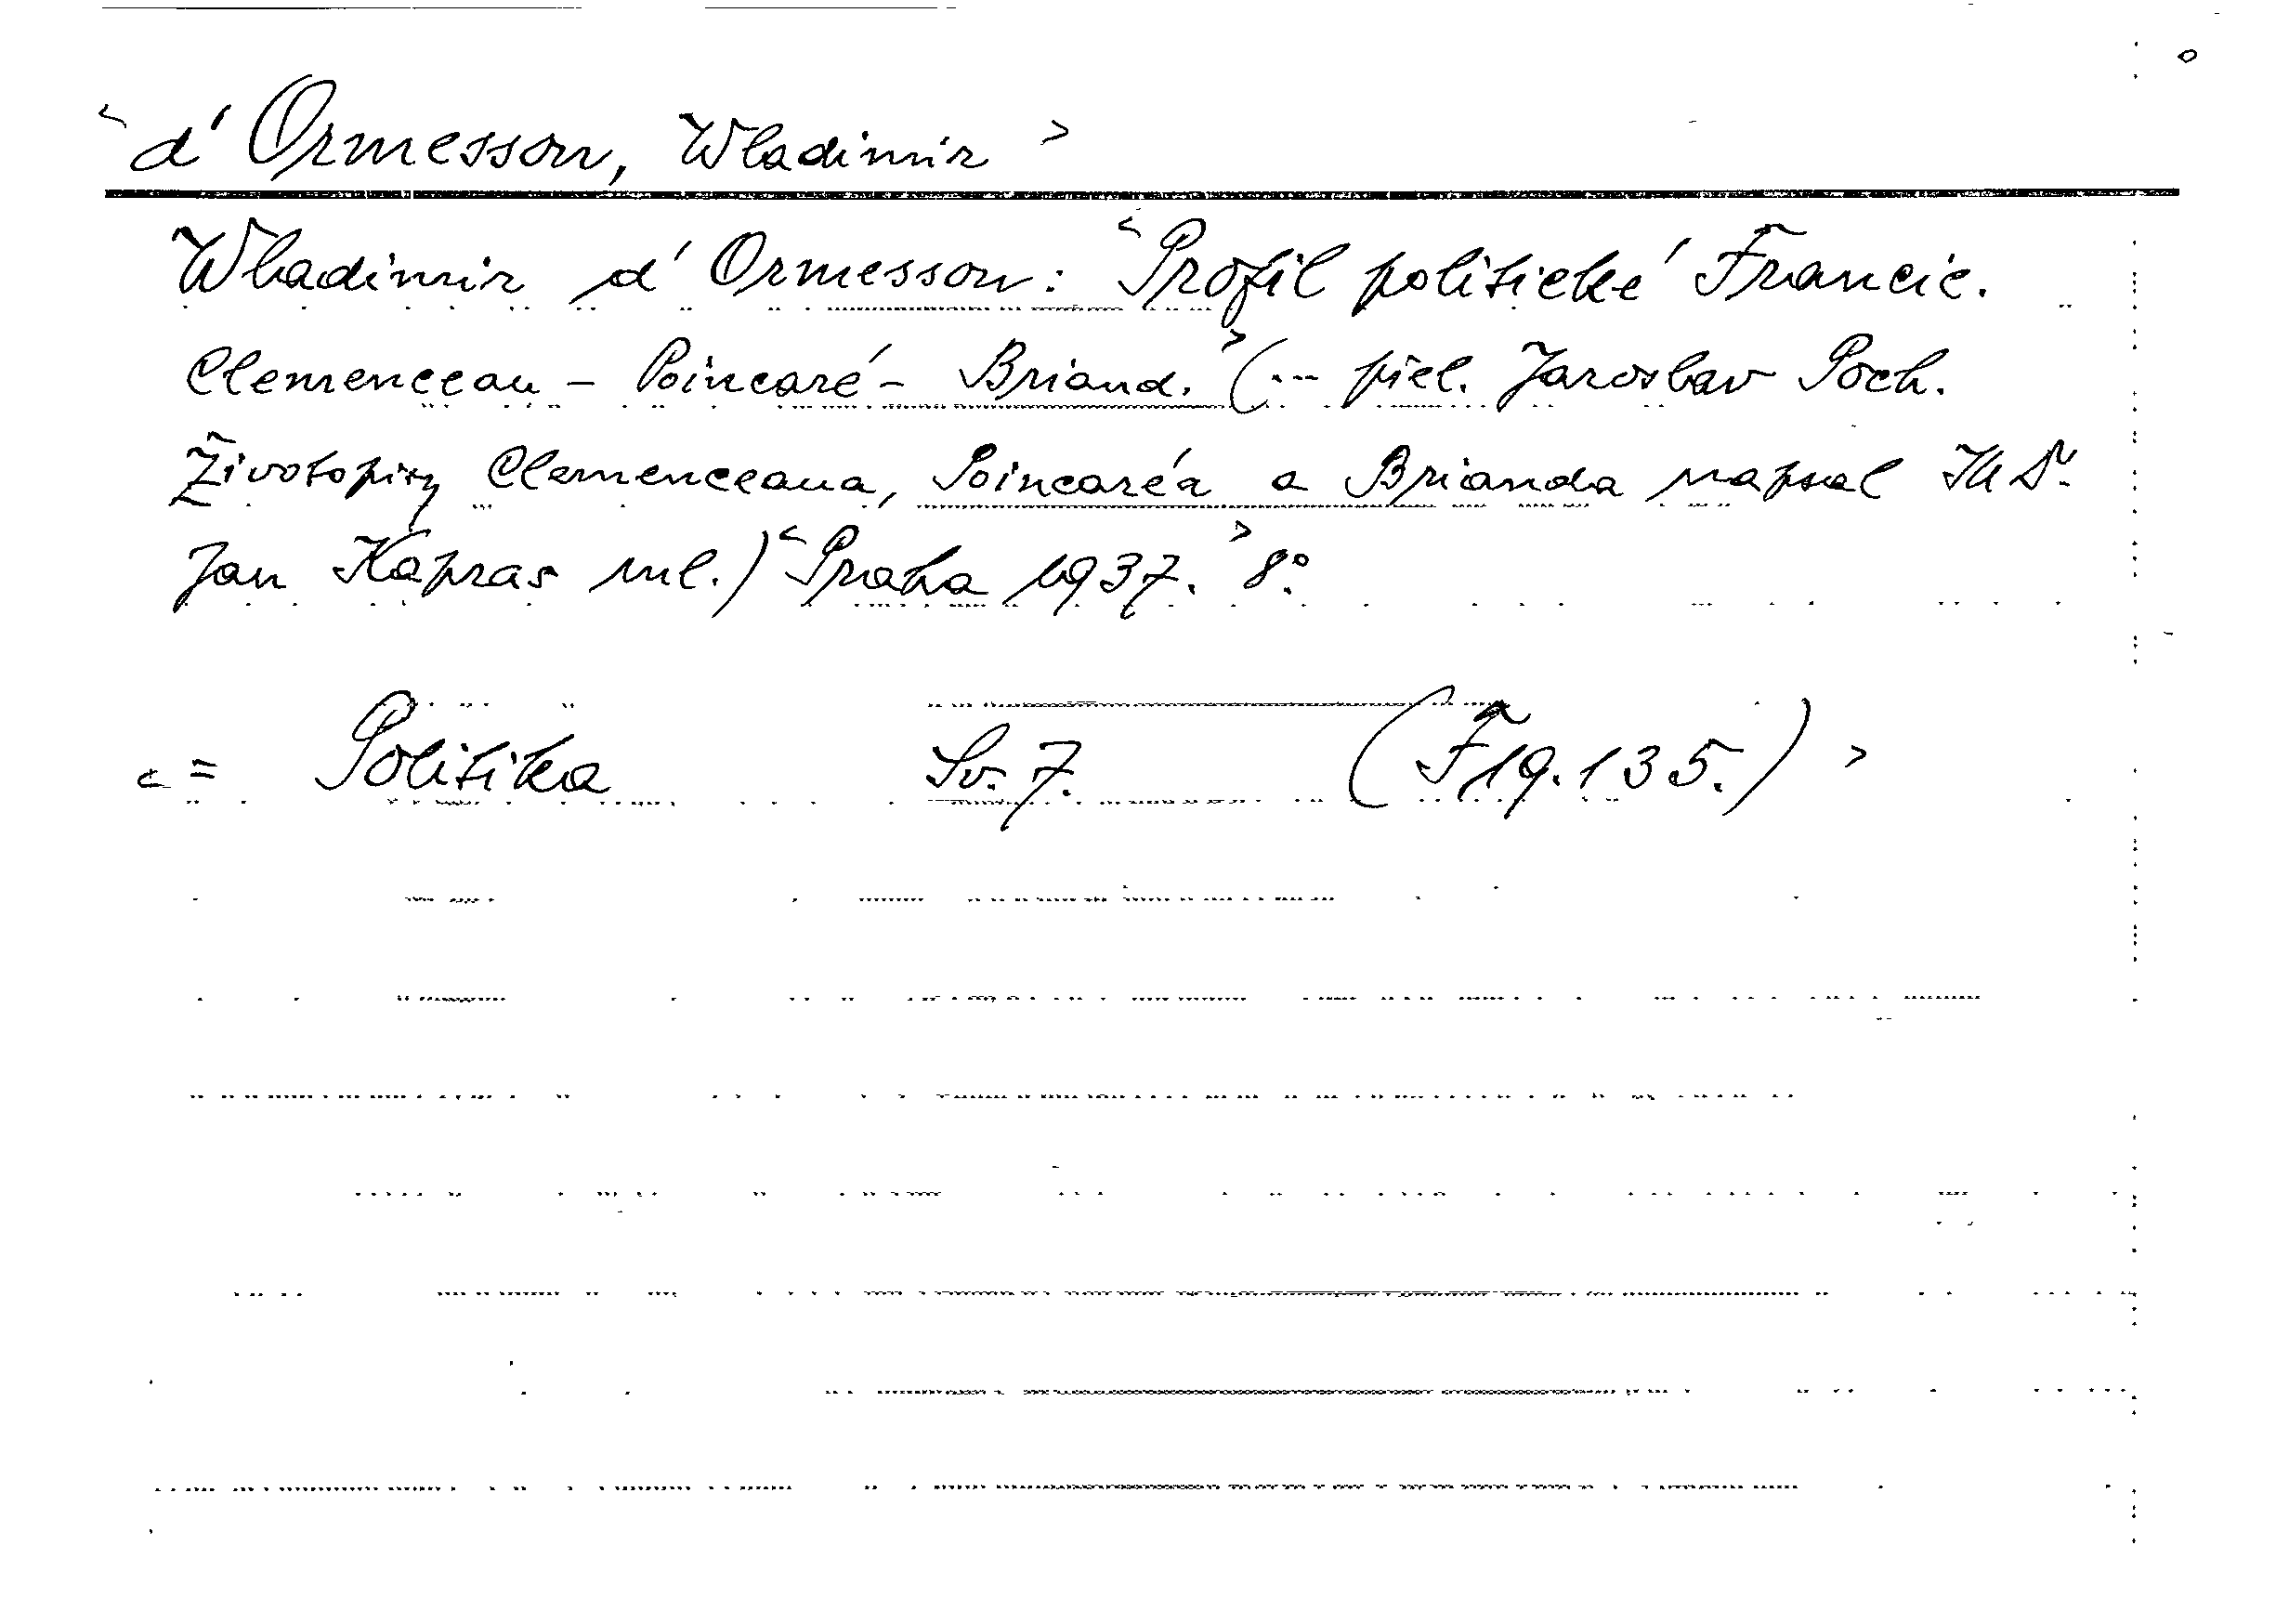 <d'Ormesson, Wladimir>
Wladimir d'Ormesson: <Profil politické Francie.
Clemenceau - Poincaré - Briand.> (... přel. Jaroslav Poch.
Životopisy Clemenceaua, Poincaréa a Brianda napsal JUDr.
Jan Kapras ml.) <Praha 1937.> 8°.
<= Politika Sv. 7. (F 19.135.)>